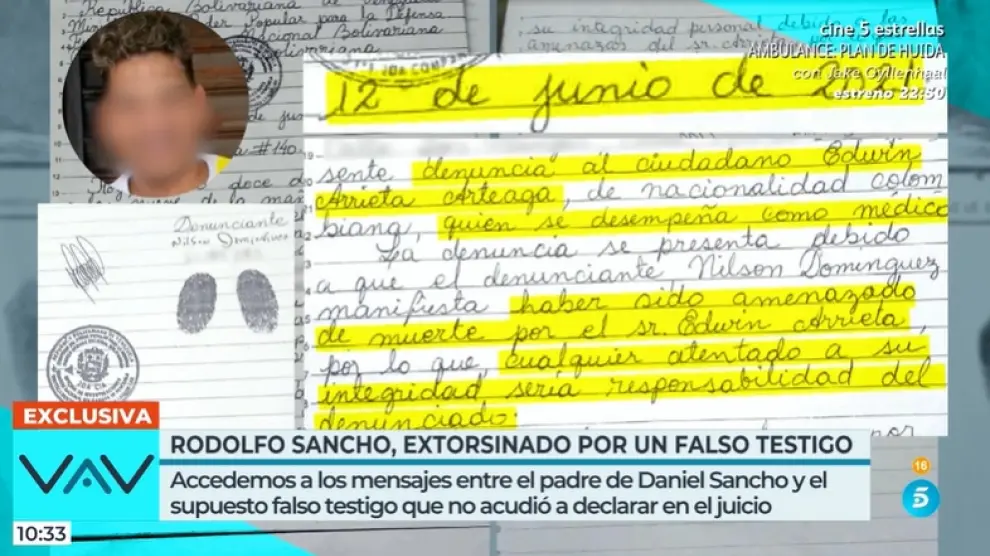 República Bolivariana de Venezuela
Poder Popular para la Defensa
Nacional Bolivariana
Bolivariana
su integridad personal debido a las
amenazas del sr. Arrieta
cine 5 estrellas
AMBULANCE: PLAN DE HUIDA
con Jake Gyllenhaal
estreno 22:50
12 de junio de
sente denuncia al ciudadano Edwin
Arrieta Arteaga, de nacionalidad colom
biana, quien se desempeña como médico
La denuncia se presenta debido
a que el denunciante Nilson Domínguez
manifiesta haber sido amenazado
de muerte por el sr. Edwin Arrieta,
por lo que, cualquier atentado a su
integridad sería responsabilidad del
denunciado.
por
Denunciante
Nilson Domínguez
EXCLUSIVA
VAV
RODOLFO SANCHO, EXTORSINADO POR UN FALSO TESTIGO
Accedemos a los mensajes entre el padre de Daniel Sancho y el
supuesto falso testigo que no acudió a declarar en el juicio
16
5
10:33